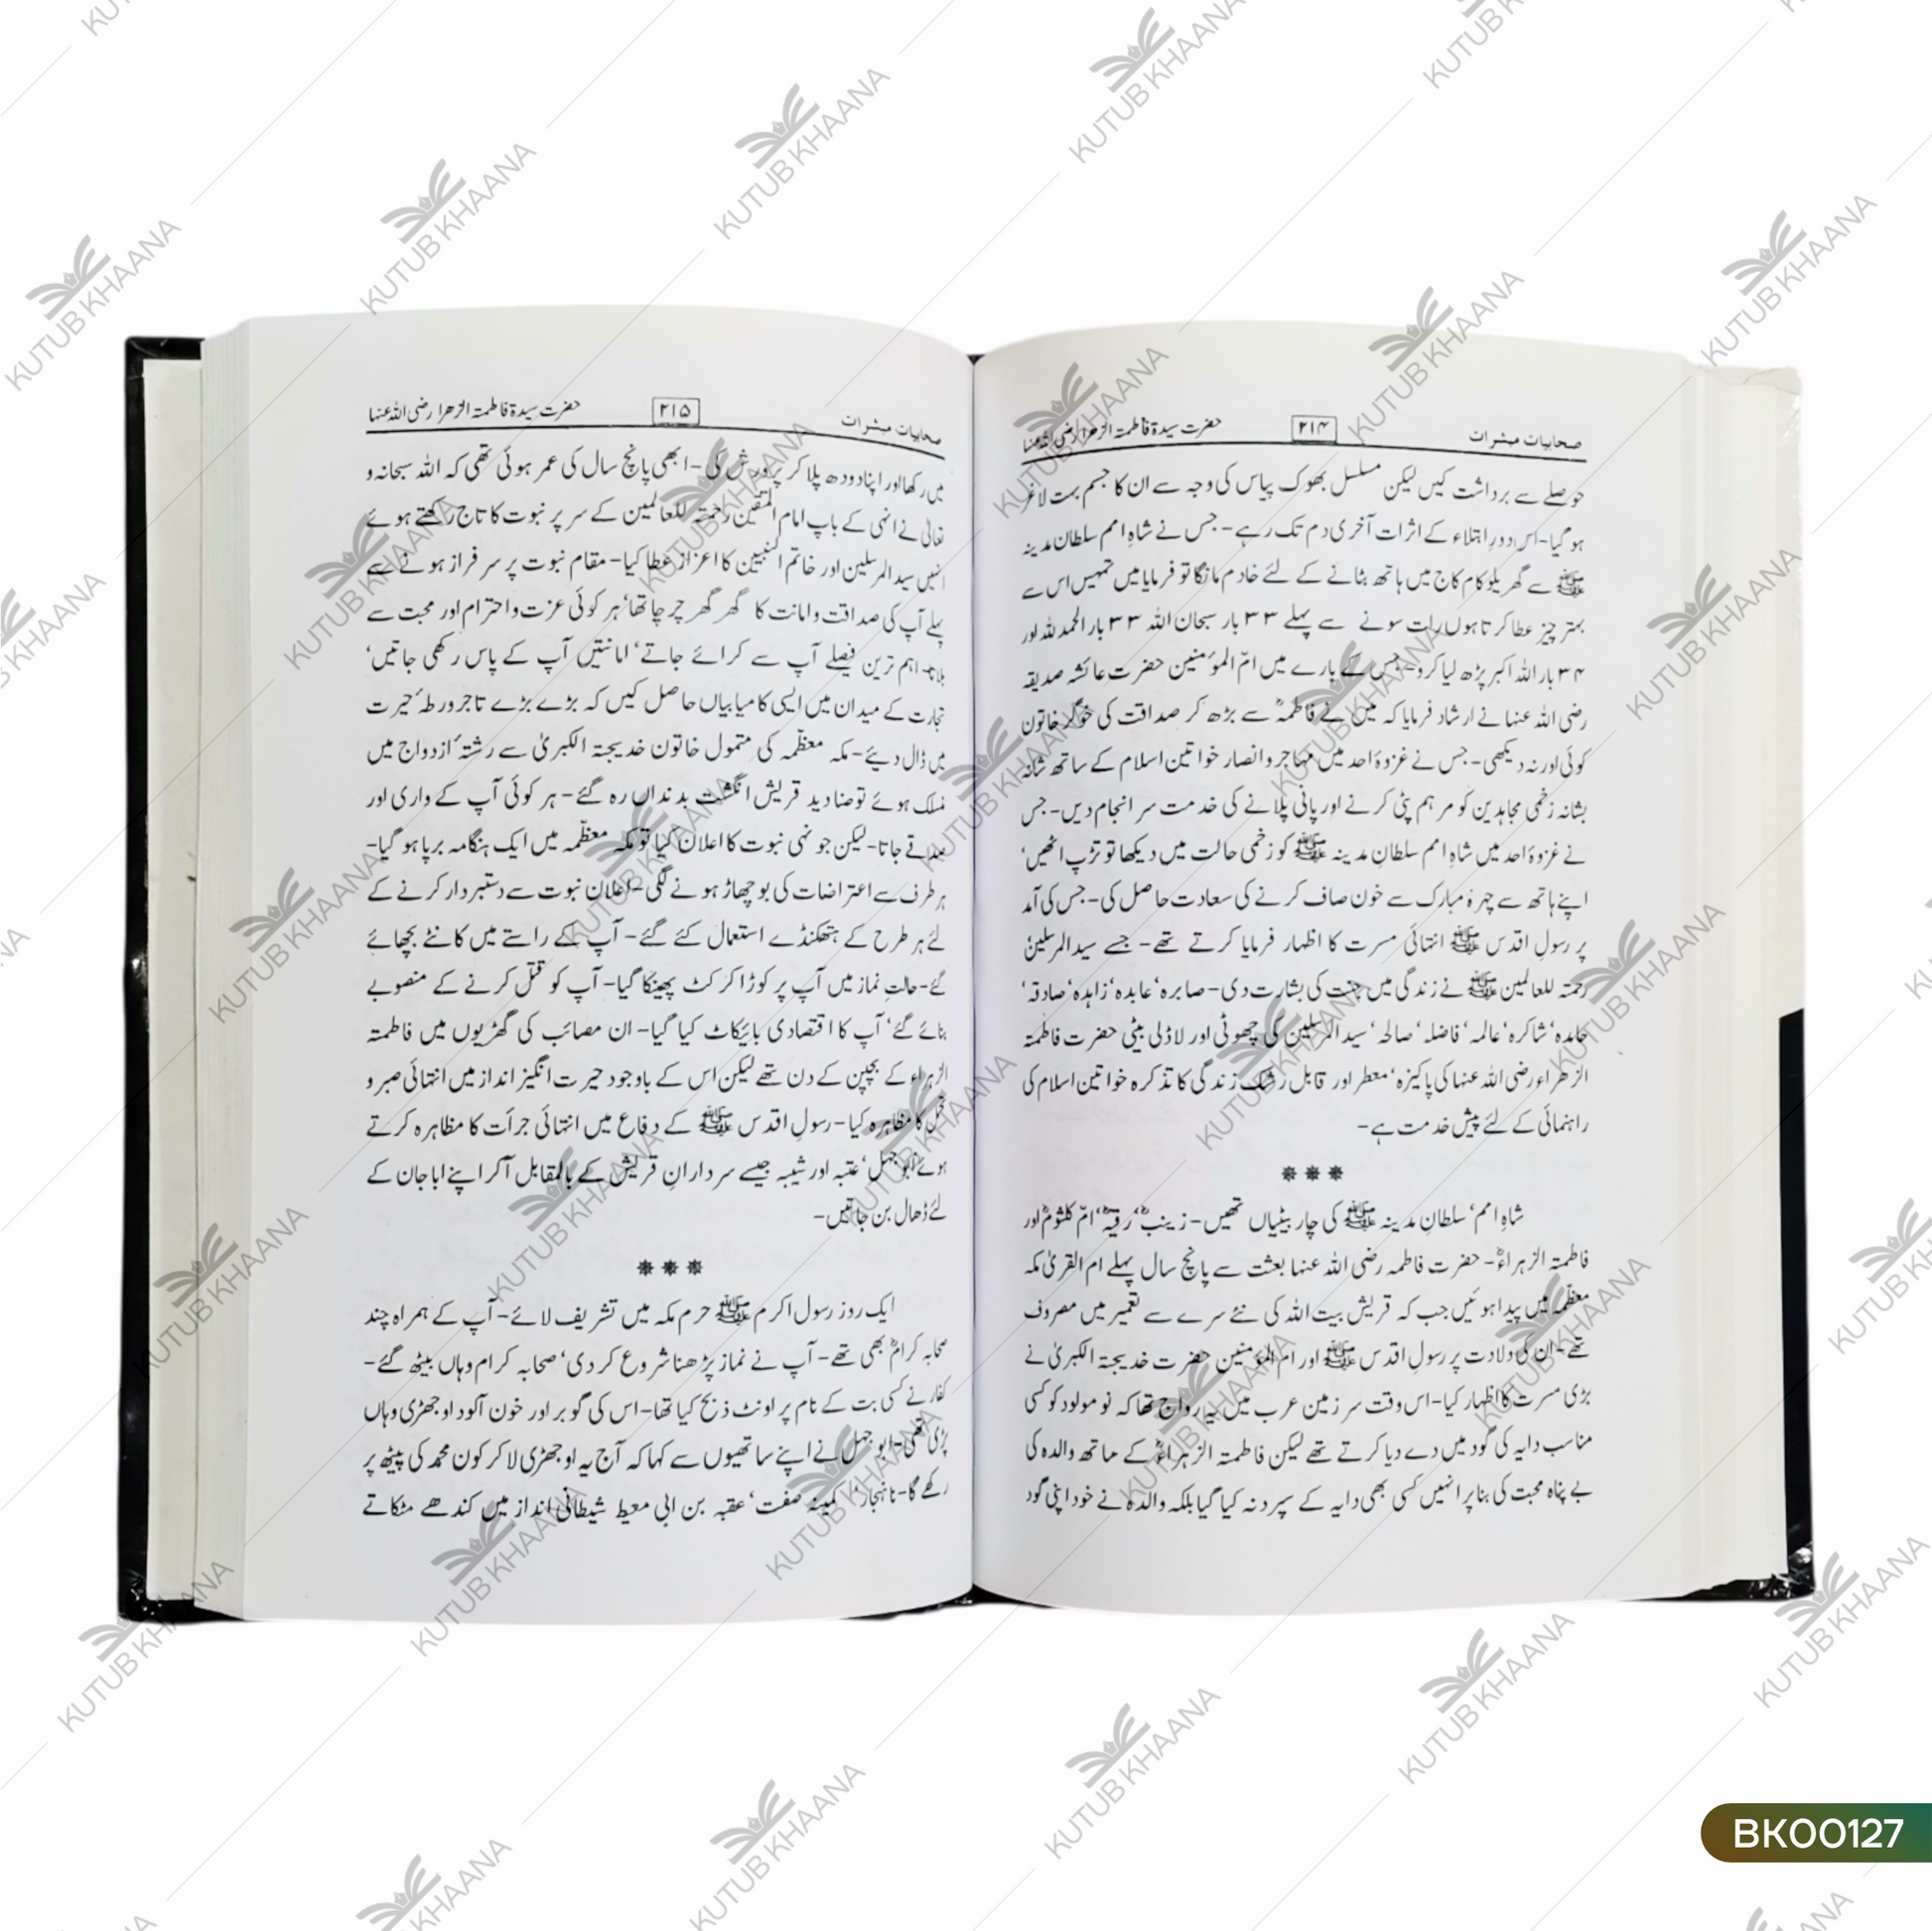 صحابیات مبشرات ۲۱۴ حضرت سیدۃ فاطمتہ الزھرا رضی اللہ عنہا
حوصلے سے برداشت کیں لیکن مسلسل بھوک پیاس کی وجہ سے ان کا جسم بہت لاغر
ہو گیا-اس دورِ ابتلاء کے اثرات آخری دم تک رہے- جس نے شاہِ امم سلطان مدینہ
ﷺ سے گھریلو کام کاج میں ہاتھ بٹانے کے لئے خادم مانگا تو فرمایا میں تمہیں اس سے
بہتر چیز عطا کرتا ہوں رات سونے سے پہلے ۳۳ بار سبحان اللہ ۳۳ بار الحمد للہ اور
۳۴ بار اللہ اکبر پڑھ لیا کرو- جس کے بارے میں امّ المؤمنین حضرت عائشہ صدیقہ
رضی اللہ عنہا نے ارشاد فرمایا کہ میں نے فاطمہؓ سے بڑھ کر صداقت کی خوگر خاتون
کوئی اور نہ دیکھی- جس نے غزوۂ احد میں مہاجر و انصار خواتین اسلام کے ساتھ شانہ
بشانہ زخمی مجاہدین کو مرہم پٹی کرنے اور پانی پلانے کی خدمت سر انجام دیں- جس
نے غزوۂ احد میں شاہِ امم سلطانِ مدینہ ﷺ کو زخمی حالت میں دیکھا تو تڑپ اٹھیں‘
اپنے ہاتھ سے چہرۂ مبارک سے خون صاف کرنے کی سعادت حاصل کی- جس کی آمد
پر رسولِ اقدس ﷺ انتہائی مسرت کا اظہار فرمایا کرتے تھے- جسے سید المرسلینؐ
رحمتہ للعالمین ﷺ نے زندگی میں جنت کی بشارت دی- صابرہ‘ عابدہ‘ زاہدہ‘ صادقہ‘
حامدہ‘ شاکرہ‘ عالمہ‘ فاضلہ‘ صالحہ‘ سید المرسلین کی چھوٹی اور لاڈلی بیٹی حضرت فاطمتہ
الزھراء رضی اللہ عنہا کی پاکیزہ‘ معطر اور قابل رشک زندگی کا تذکرہ خواتین اسلام کی
راہنمائی کے لئے پیش خدمت ہے-
***
شاہِ امم‘ سلطانِ مدینہ ﷺ کی چار بیٹیاں تھیں- زینبؓ‘ رقیہؓ‘ امّ کلثومؓ اور
فاطمتہ الزہراءؓ- حضرت فاطمہ رضی اللہ عنہا بعثت سے پانچ سال پہلے ام القریٰ مکہ
معظّمہ میں پیدا ہوئیں جب کہ قریش بیت اللہ کی نئے سرے سے تعمیر میں مصروف
تھے- ان کی ولادت پر رسولِ اقدس ﷺ اور ام المؤمنین حضرت خدیجتہ الکبریٰ نے
بڑی مسرت کا اظہار کیا- اس وقت سرزمین عرب میں یہ رواج تھا کہ نومولود کو کسی
مناسب دایہ کی گود میں دے دیا کرتے تھے لیکن فاطمتہ الزہراءؓ کے ساتھ والدہ کی
بے پناہ محبت کی بنا پر انہیں کسی بھی دایہ کے سپرد نہ کیا گیا بلکہ والدہ نے خود اپنی گود
صحابیات مبشرات ۲۱۵ حضرت سیدۃ فاطمتہ الزھرا رضی اللہ عنہا
میں رکھا اور اپنا دودھ پلا کر پرورش کی- ابھی پانچ سال کی عمر ہوئی تھی کہ اللہ سبحانہ و
تعالیٰ نے انہی کے باپ امام المتّقین رحمتہ للعالمین کے سر پر نبوت کا تاج رکھتے ہوئے
انہیں سید المرسلین اور خاتم النبیین کا اعزاز عطا کیا- مقام نبوت پر سرفراز ہونے سے
پہلے آپ کی صداقت و امانت کا گھر گھر چرچا تھا‘ ہر کوئی عزت و احترام اور محبت سے
بلاتا- اہم ترین فیصلے آپ سے کرائے جاتے‘ امانتیں آپ کے پاس رکھی جاتیں‘
تجارت کے میدان میں ایسی کامیابیاں حاصل کیں کہ بڑے بڑے تاجر ورطۂ حیرت
میں ڈال دیئے- مکہ معظّمہ کی متمول خاتون خدیجتہ الکبریٰ سے رشتۂ ازدواج میں
منسلک ہوئے تو صنادید قریش انگشت بدنداں رہ گئے- ہر کوئی آپ کے واری اور
صدقے جاتا- لیکن جونہی نبوت کا اعلان کیا تو مکہ معظّمہ میں ایک ہنگامہ برپا ہو گیا-
ہر طرف سے اعتراضات کی بوچھاڑ ہونے لگی- اعلان نبوت سے دستبردار کرنے کے
لئے ہر طرح کے ہتھکنڈے استعمال کئے گئے- آپ کے راستے میں کانٹے بچھائے
گئے- حالتِ نماز میں آپ پر کوڑا کرکٹ پھینکا گیا- آپ کو قتل کرنے کے منصوبے
بنائے گئے‘ آپ کا اقتصادی بائیکاٹ کیا گیا- ان مصائب کی گھڑیوں میں فاطمتہ
الزہراء کے بچپن کے دن تھے لیکن اس کے باوجود حیرت انگیز انداز میں انتہائی صبر و
تحمل کا مظاہرہ کیا- رسولِ اقدس ﷺ کے دفاع میں انتہائی جرأت کا مظاہرہ کرتے
ہوئے ابوجہل‘ عتبہ اور شیبہ جیسے سردارانِ قریش کے بالمقابل آکر اپنے ابا جان کے
لئے ڈھال بن جاتیں-
***
ایک روز رسول اکرم ﷺ حرم مکہ میں تشریف لائے- آپ کے ہمراہ چند
صحابہ کرامؓ بھی تھے- آپ نے نماز پڑھنا شروع کر دی‘ صحابہ کرام وہاں بیٹھ گئے-
کفار نے کسی بت کے نام پر اونٹ ذبح کیا تھا- اس کی گوبر اور خون آلود اوجھڑی وہاں
پڑی تھی- ابوجہل نے اپنے ساتھیوں سے کہا کہ آج یہ اوجھڑی لا کر کون محمد کی پیٹھ پر
رکھے گا- نانہجار‘ کمینہ صفت‘ عقبہ بن ابی معیط شیطانی انداز میں کندھے مٹکاتے
KUTUB KHAANA
BK00127